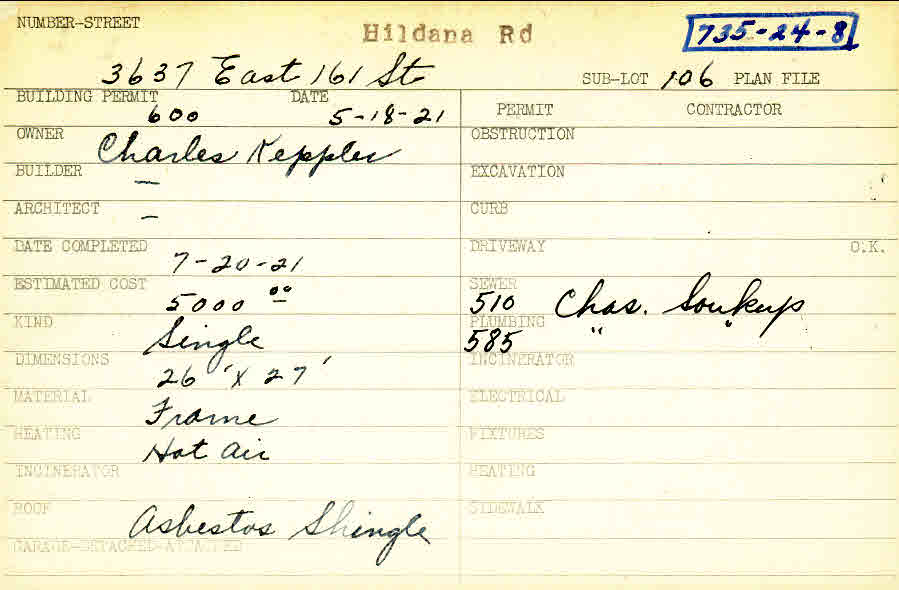 NUMBER-STREET
Hildana Rd
735-24-8
3637 East 161 St
SUB-LOT 106 PLAN FILE
BUILDING PERMIT 600
DATE 5-18-21
PERMIT CONTRACTOR
OWNER Charles Keppler
OBSTRUCTION
BUILDER —
EXCAVATION
ARCHITECT —
CURB
DATE COMPLETED 7-20-21
DRIVEWAY O.K.
ESTIMATED COST 5000 00
SEWER 510 Chas. Soukup
KIND Single
PLUMBING 585 " "
DIMENSIONS 26' X 27'
INCINERATOR
MATERIAL Frame
ELECTRICAL
HEATING Hot Air
FIXTURES
INCINERATOR
HEATING
ROOF Asbestos Shingle
SIDEWALK
GARAGE-DETACHED-ATTACHED